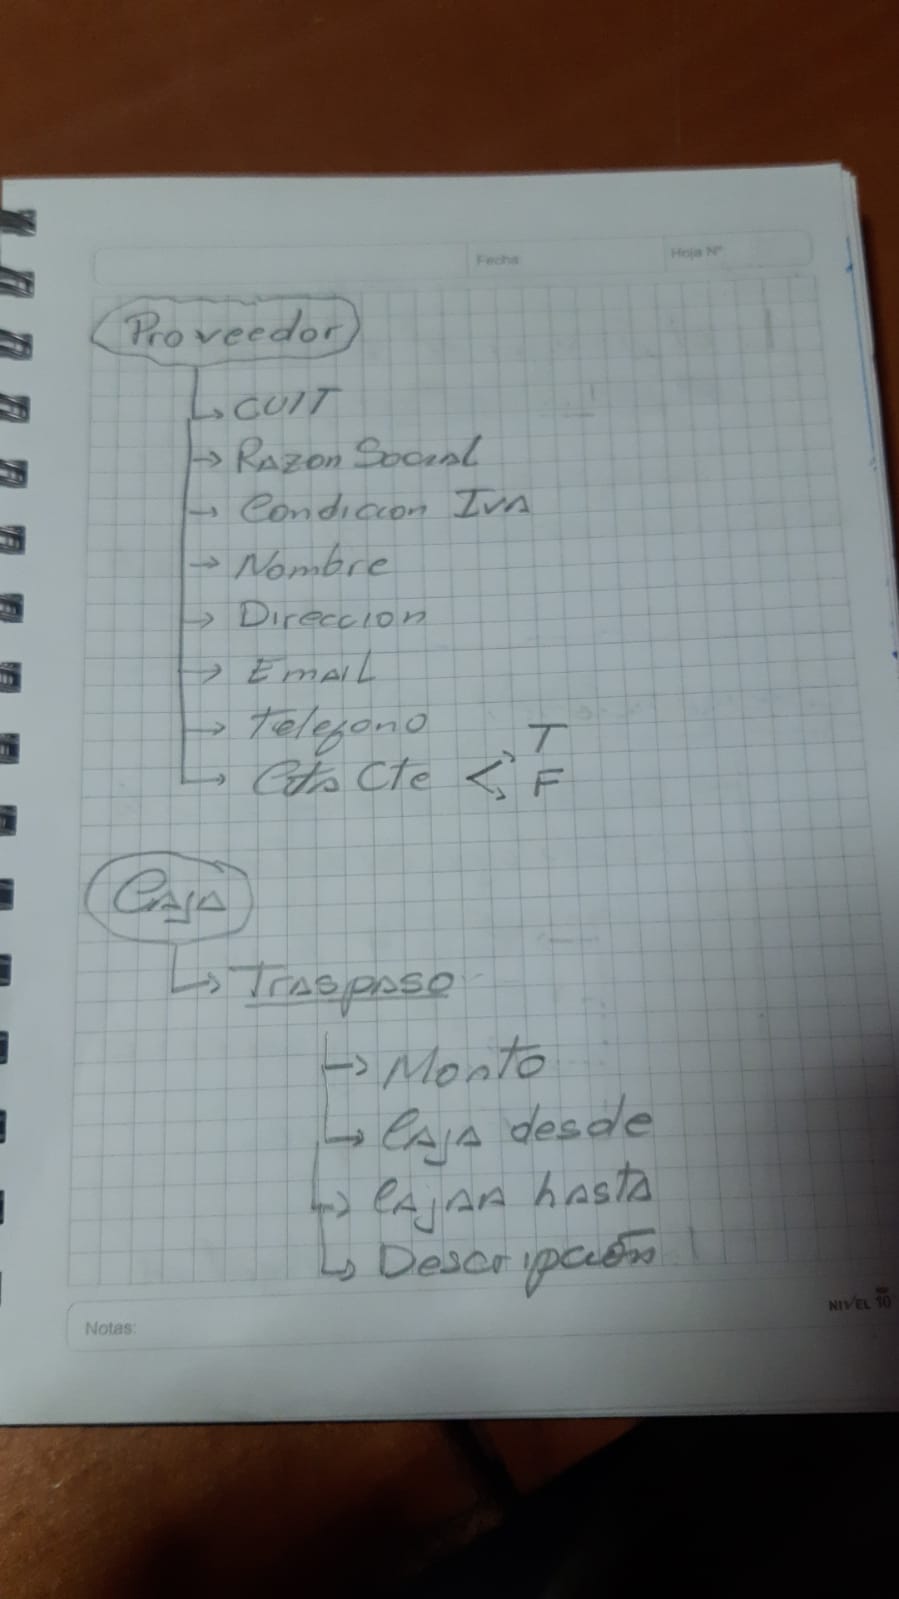 Fecha
Hoja N°
Proveedor
CUIT
Razon Social
Condicion Iva
Nombre
Direccion
Email
Telefono
Cta Cte
T
F
Caja
Traspaso
Monto
Caja desde
Cajaa hasta
Descripción
NIVEL 10
Notas: